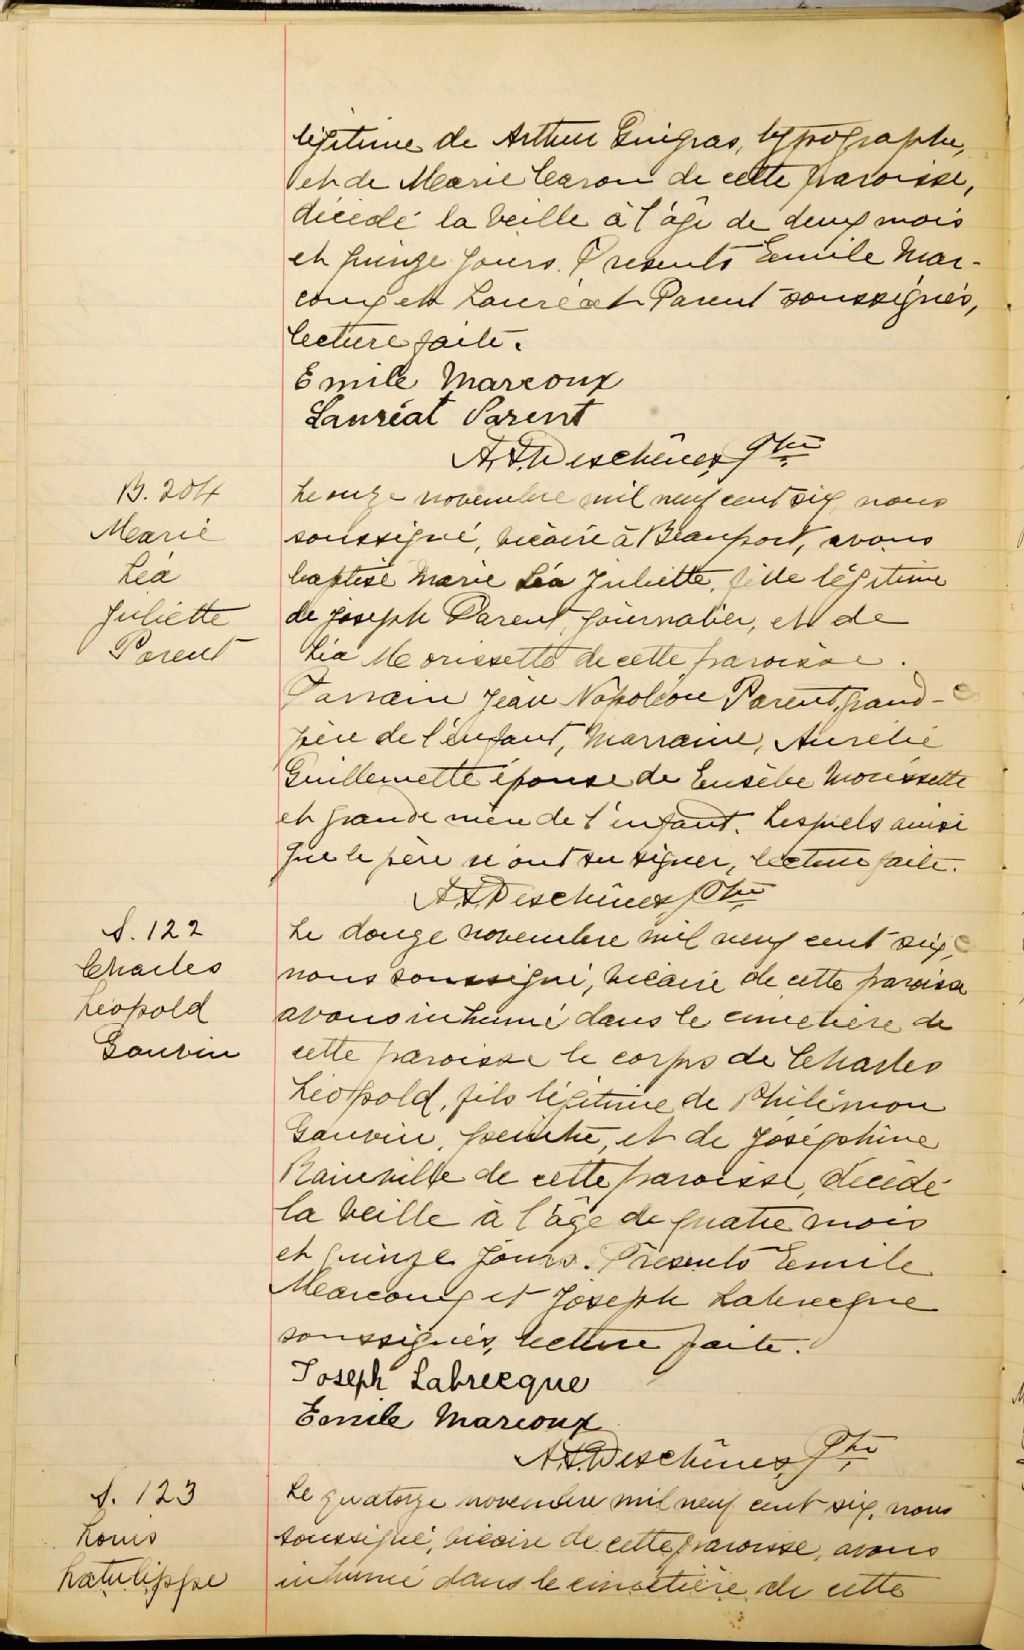 légitime de Arthur Gingras, typographe,
et de Marie Caron de cette paroisse,
décédé la veille à l'âge de deux mois
et quinze jours. Presents Emile Mar-
coux et Lauréat Parent soussignés,
lecture faite.
Emile Marcoux
Lauréat Parent
A. S. Deschênes, Ptre
B. 204
Marie
Léa
Juliette
Parent
Le onze novembre mil neuf cent six nous
soussigné, vicaire à Beauport, avons
baptisé Marie Léa Juliette, fille légitime
de Joseph Parent, journalier, et de
Léa Morissette de cette paroisse.
Parrain Jean Napoléon Parent, grand-
père de l'enfant, Marraine, Aurélie
Guillemette épouse de Eusèbe Morissette
et grande mère de l'enfant. Lesquels ainsi
que le père n'ont su signer, lecture faite.
A. S. Deschênes Ptre
S. 122
Charles
Léopold
Gauvin
Le douze novembre mil neuf cent six,
nous soussigné, vicaire de cette paroisse
avons inhumé dans le cimetière de
cette paroisse le corps de Charles
Léopold, fils légitime de Philémon
Gauvin, peintre, et de Joséphine
Rainville de cette paroisse, décédé
la veille à l'âge de quatre mois
et quinze jours. Présents Emile
Marcoux et Joseph Labrecque
soussignés, lecture faite.
Joseph Labrecque
Emile Marcoux
A. S. Deschênes, Ptre
S. 123
Louis
Latulippe
Le quatorze novembre mil neuf cent six, nous
soussigné, vicaire de cette paroisse, avons
inhumé dans le cimetière de cette